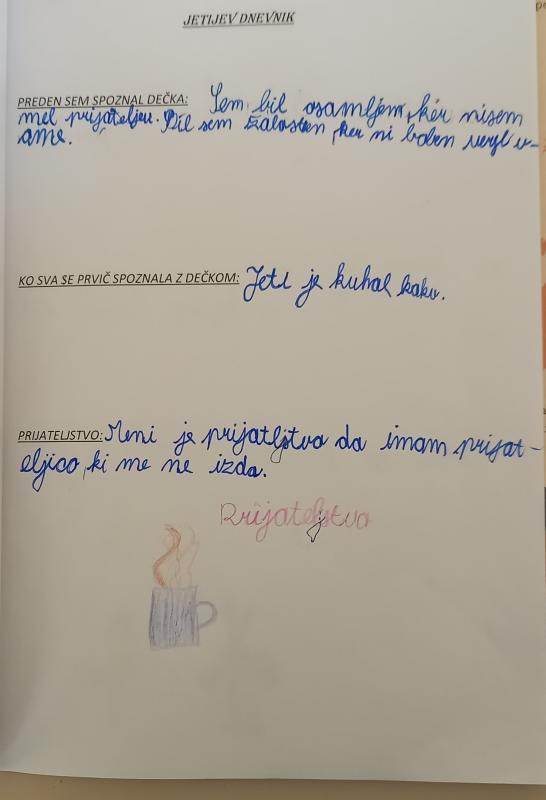 JETIJEV DNEVNIK
PREDEN SEM SPOZNAL DEČKA: Sem bil osamljem, ker nisem
mel prijateljev. Bil sem žalosten, ker ni boben verjel v-
ame.
KO SVA SE PRVIČ SPOZNALA Z DEČKOM: Jeti je kuhal kakv.
PRIJATELJSTVO: Meni je prijatljstvo da imam prijat-
eljico, ki me ne izda.
Prijateljstvo